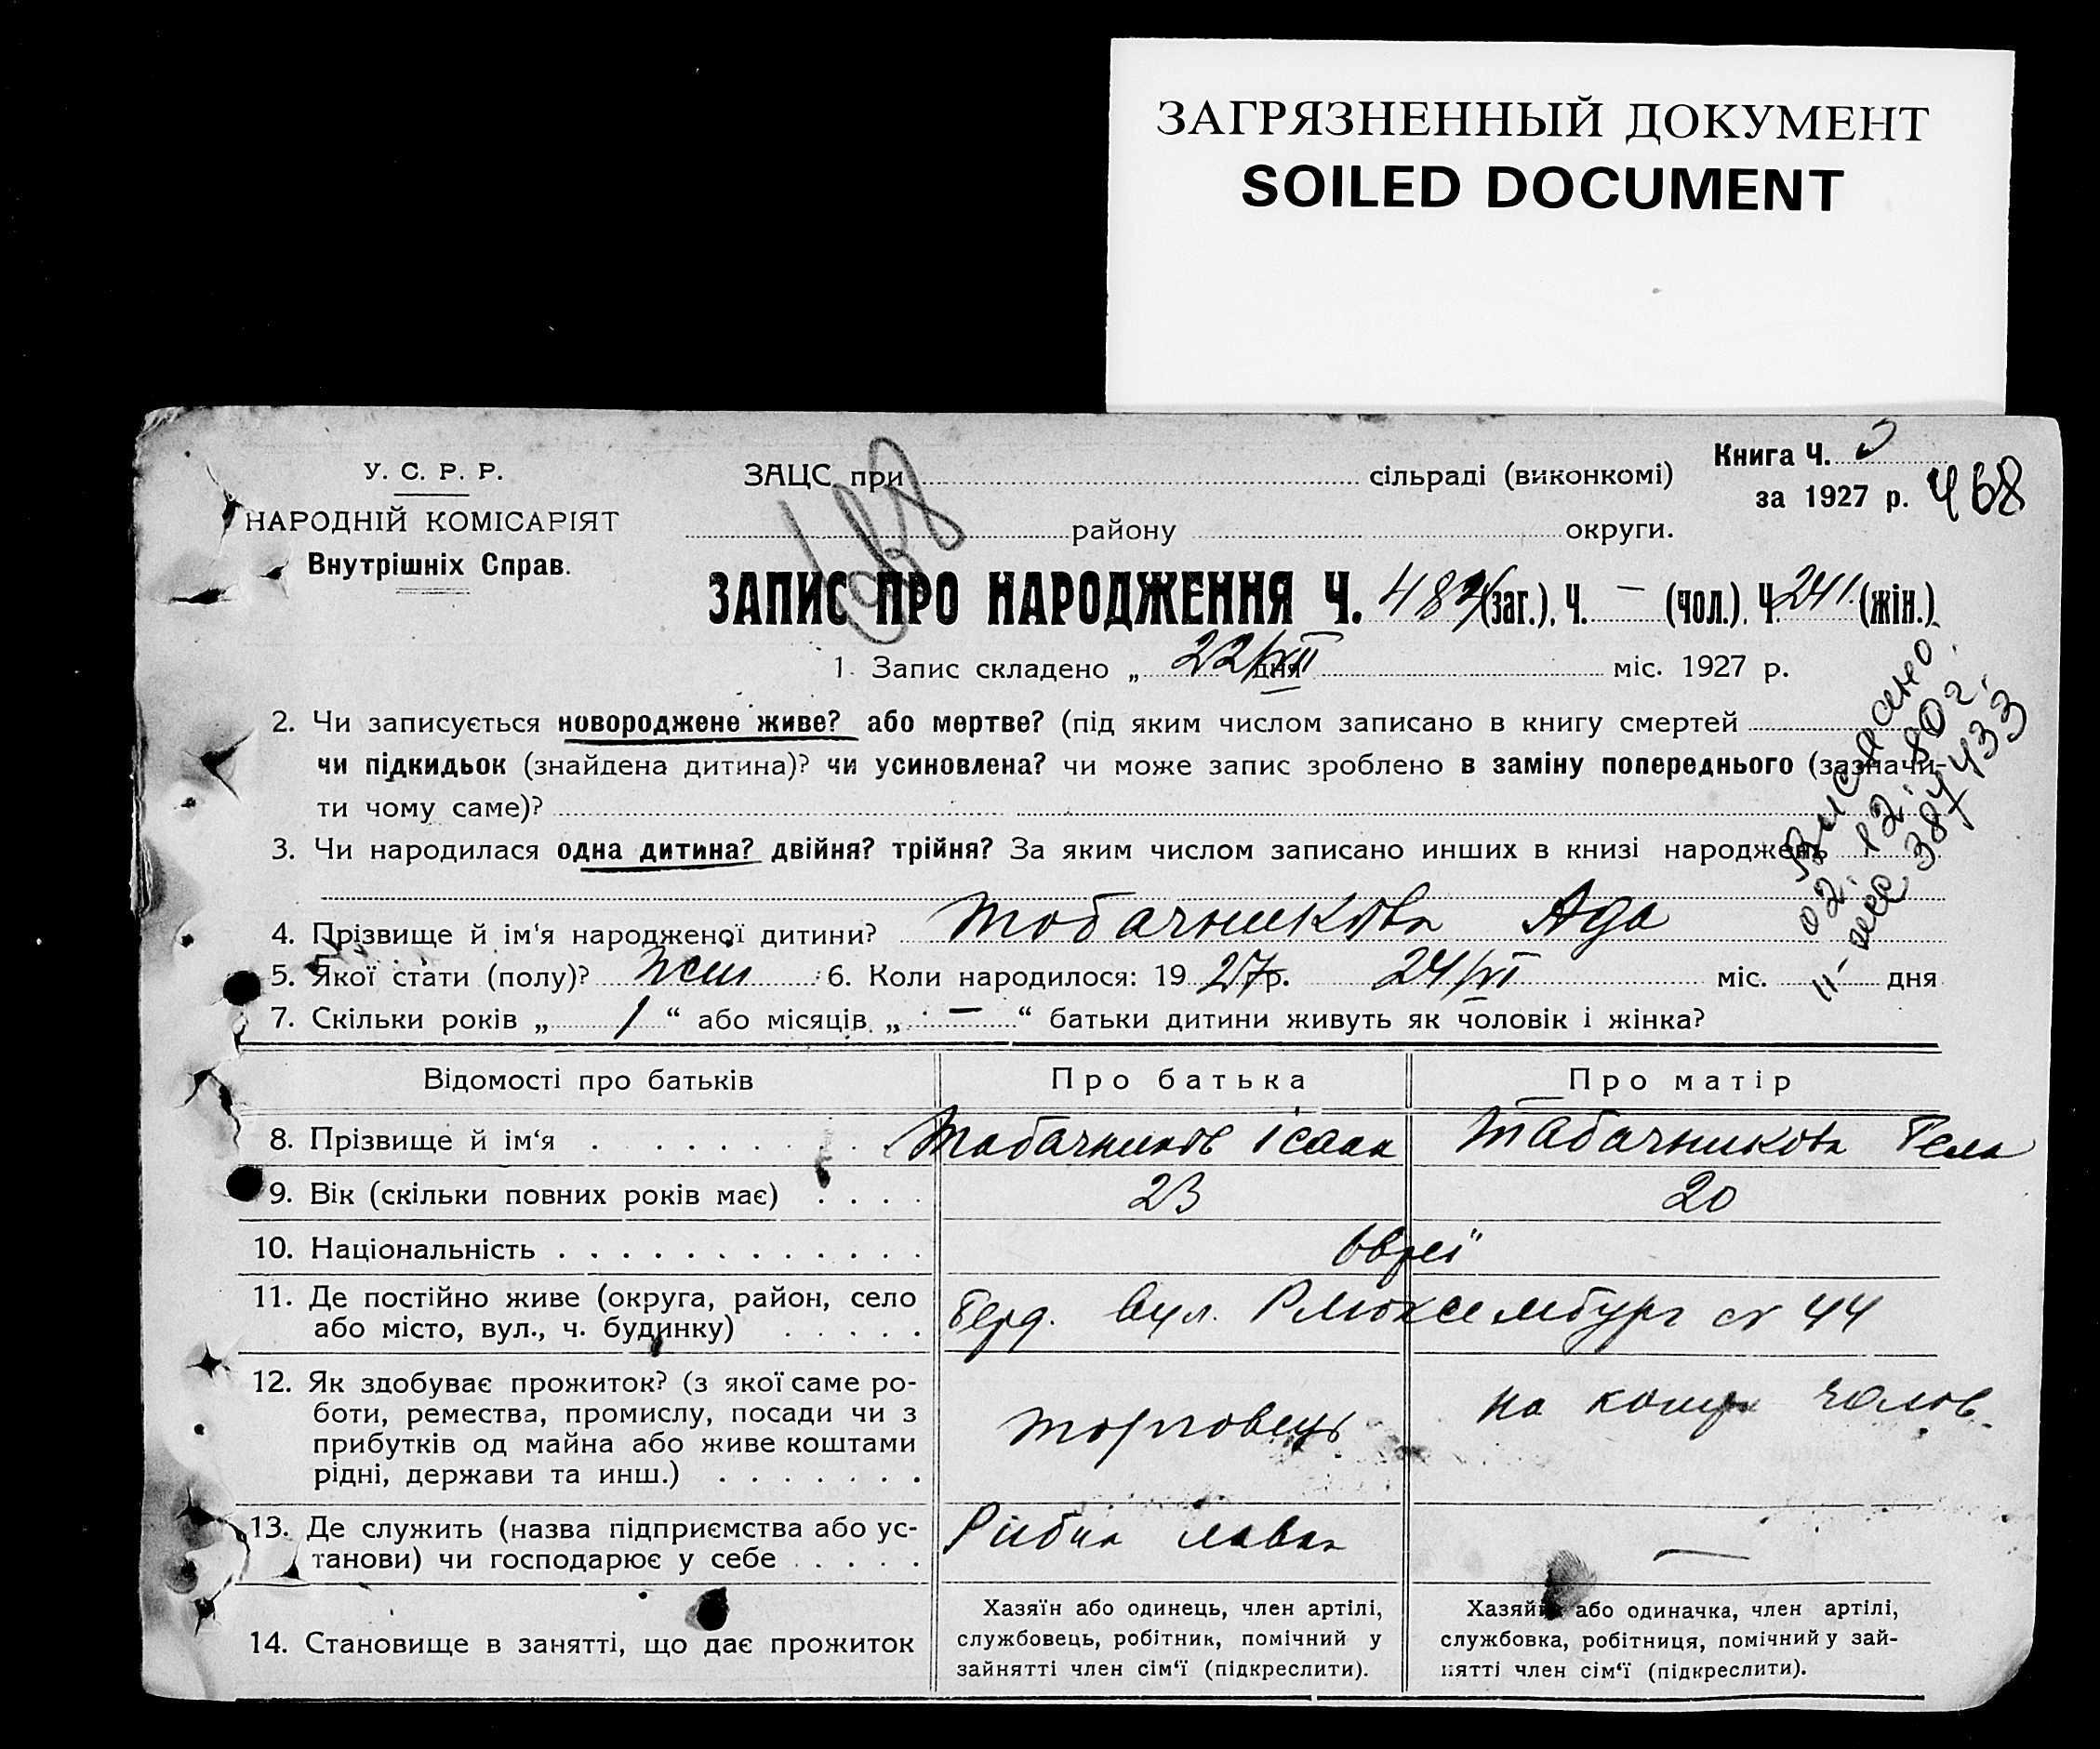 ЗАГРЯЗНЕННЫЙ ДОКУМЕНТ
SOILED DOCUMENT
У. С. Р. Р.
НАРОДНІЙ КОМІСАРІЯТ
Внутрішніх Справ.
ЗАЦС при сільраді (виконкомі)
району округи.
Книга Ч. 3
за 1927 р. 468
ЗАПИС ПРО НАРОДЖЕННЯ Ч. (заг.), Ч. — (чол.), Ч. 241 (жін.)
1. Запис складено „ 22/VII дня міс. 1927 р.
2. Чи записується новороджене живе? або мертве? (під яким числом записано в книгу смертей
чи підкидьок (знайдена дитина)? чи усиновлена? чи може запис зроблено в заміну попереднього (зазначи-
ти чому саме)?
3. Чи народилася одна дитина? двійня? трійня? За яким числом записано инших в книзі народжень
4. Прізвище й ім‘я народженої дитини? Табачникова Ада
5. Якої стати (полу)? жін 6. Коли народилося: 1927 р. 24/VI міс. дня
7. Скільки років „ 1 “ або місяців „ — “ батьки дитини живуть як чоловік і жінка?
Виписано
02.12.80г.
387433
Відомості про батьків Про батька Про матір
8. Прізвище й ім‘я Табачников Ісаак Табачникова
9. Вік (скільки повних років має) 23 20
10. Національність євреї
11. Де постійно живе (округа, район, село
або місто, вул., ч. будинку)
Берд. вул. Р Люксембург № 44
12. Як здобуває прожиток? (з якої саме ро-
боти, ремества, промислу, посади чи з
прибутків од майна або живе коштами
рідні, держави та инш.)
торговець на кошти чолов.
13. Де служить (назва підприємства або ус-
танови) чи господарює у себе
Рибна лавка —
14. Становище в занятті, що дає прожиток
Хазяїн або одинець, член артілі,
службовець, робітник, помічний у
зайнятті член сім‘ї (підкреслити).
Хазяйка або одиначка, член артілі,
службовка, робітниця, помічний у зай-
нятті член сім‘ї (підкреслити).